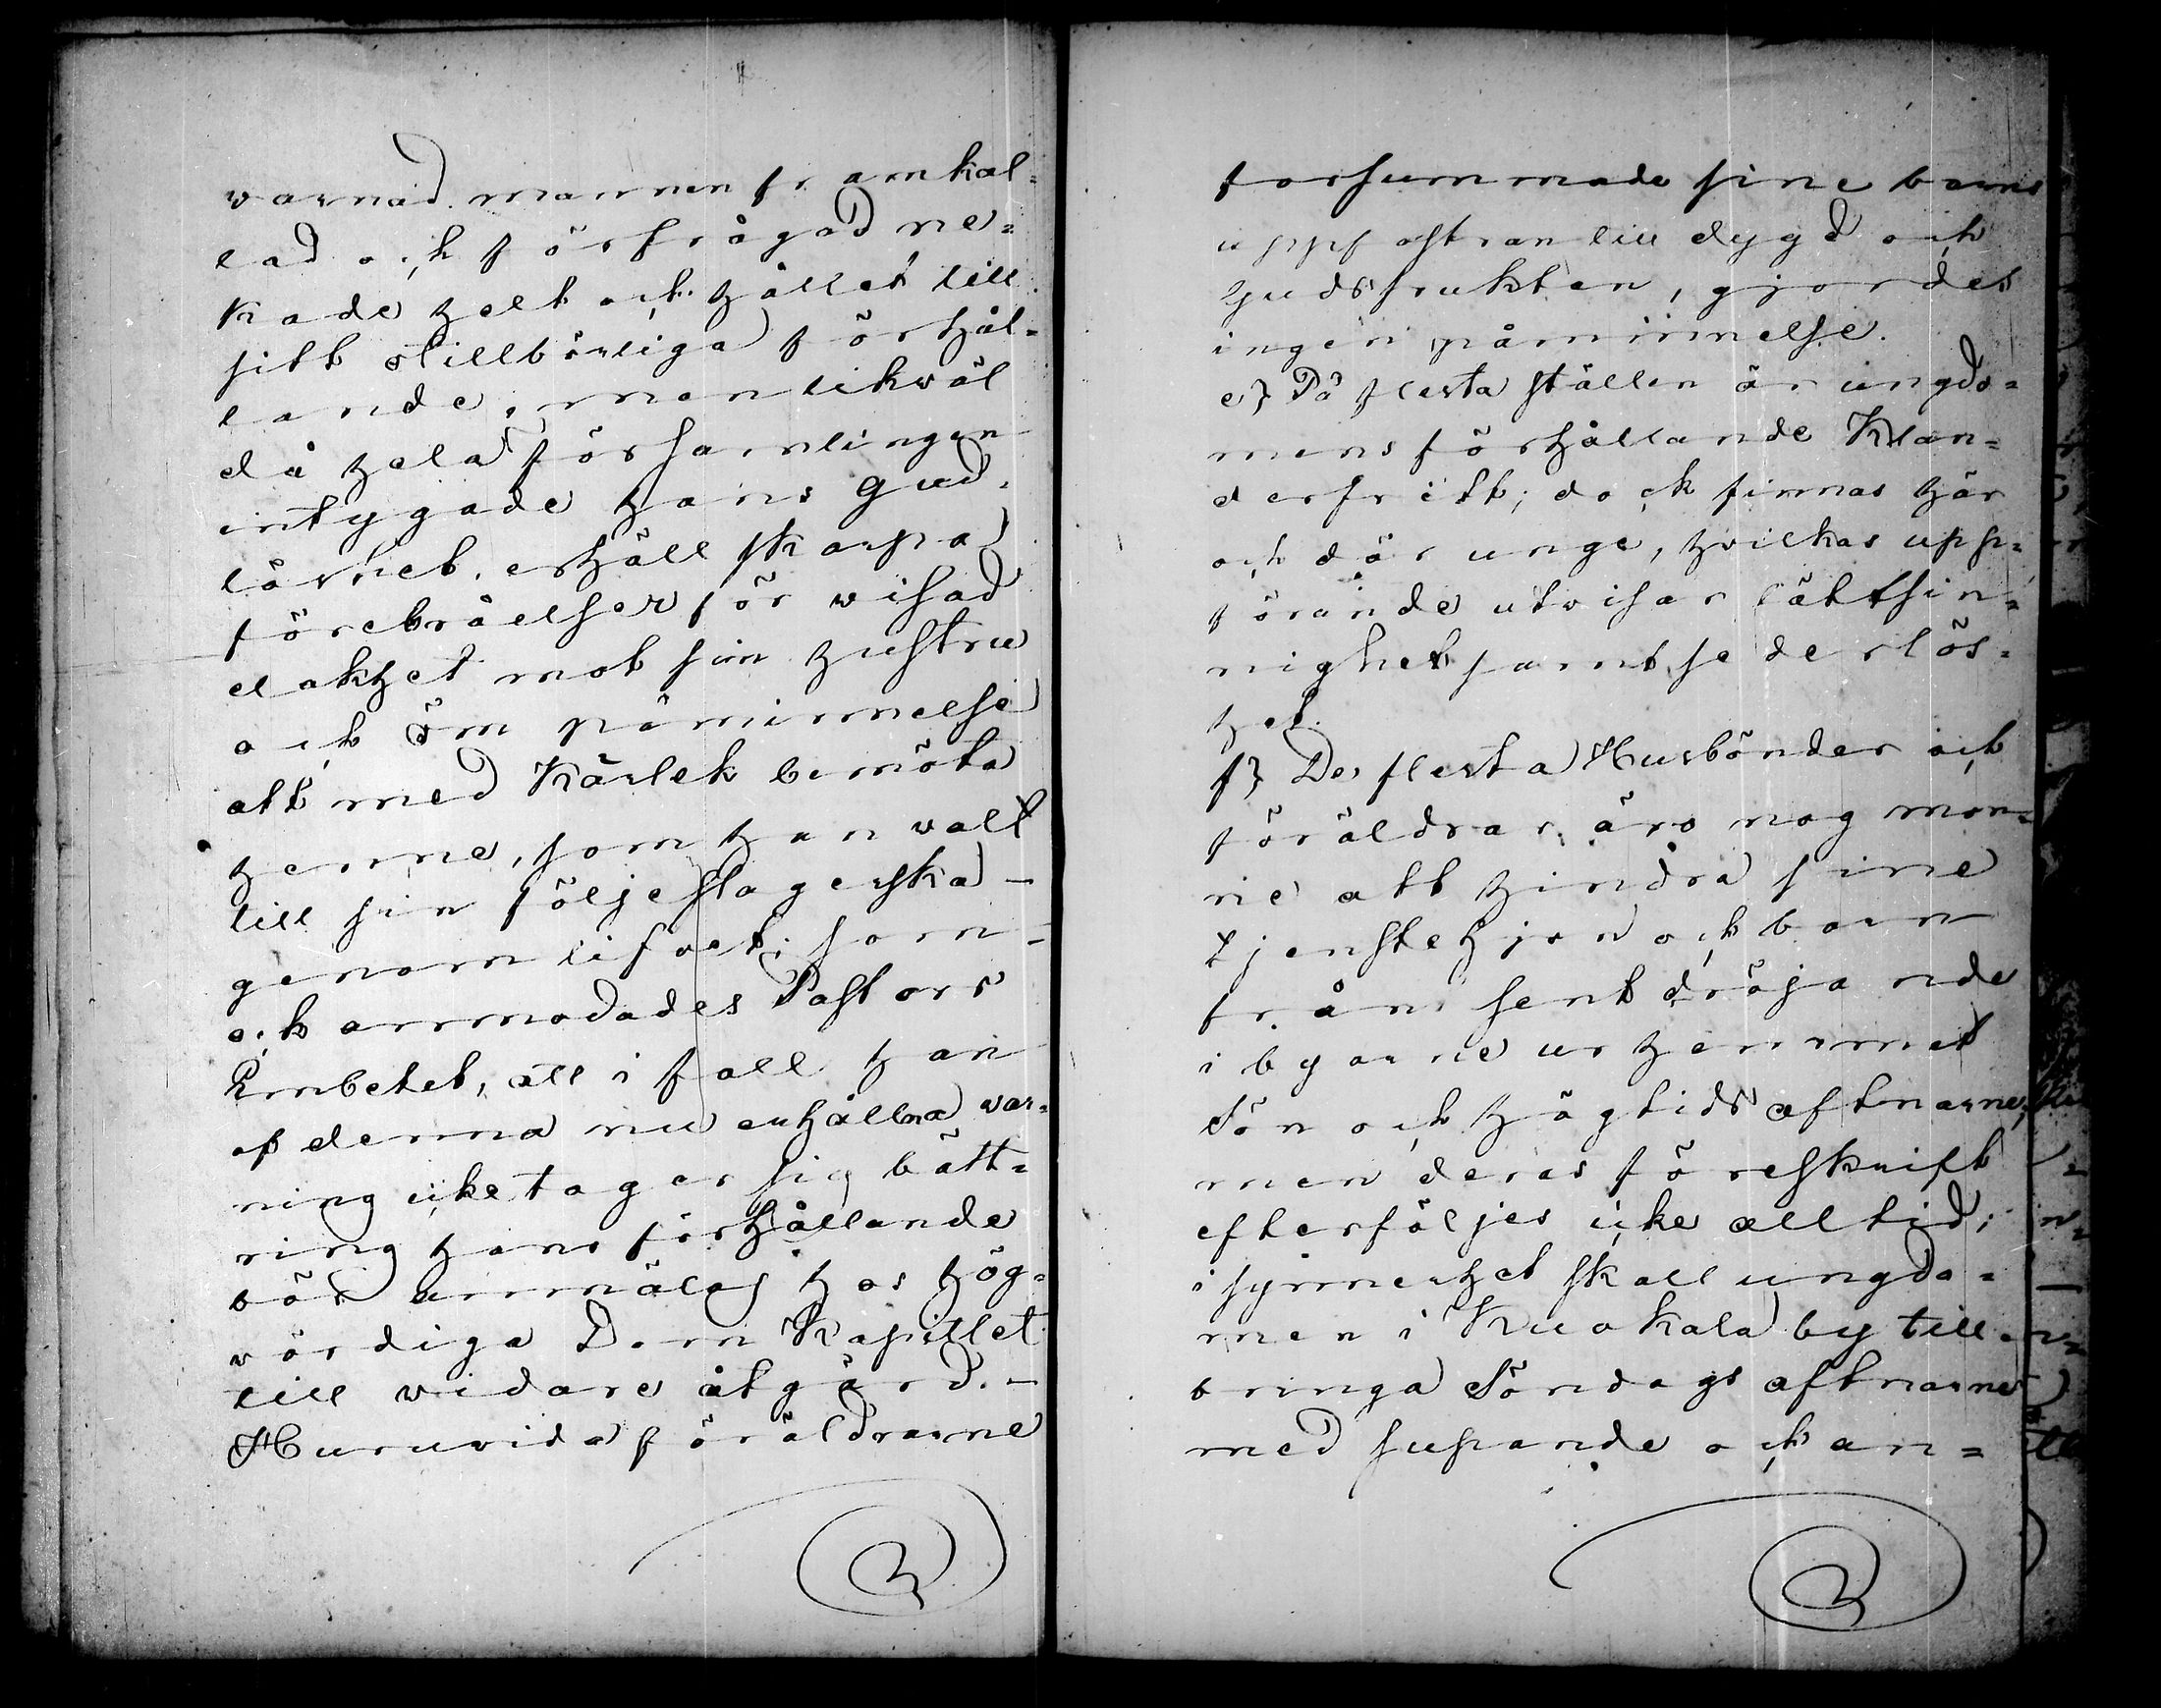 varnad. mannen framkal-
lad och förfrågad ne-
kade helt och hållet till
sitt otillbörliga förhål-
lande, men likväl
då hela församlingen
intygade hans gud-
löshet. erhöll skarpa
förebråelser för visad
elakhet mot sin hustru
och öm påminnelse
att med Kärlek bemöta
henne, som han valt
till sin följeslagerska -
genom lifvet; som -
ock anmodades Pastors
Embetet, att i fall han
af denna nu erhållna var-
ning icke tager sig bätt-
ring hans förhållande
bör anmälas hos hög-
vördiga Dom Kapitlet
till vidare åtgärd. -
Huruvida föräldrarne
forsummade sine barns
uppfostran till dygd och
Gudsfruktan, gjordes
ingen påminnelse.
e} På flesta ställen är ungdo-
mens förhållande Klan-
derfritt; dock finnas här
och där unge, hvilkas upp-
förande utvisar lättsin-
nighet samt sedeslös-
het.
f} De flesta Husbönder och
föräldrar äro nog mon-
ne att hindra sine
tjenstehjon och barn
från sent dröjande
i byarne ur hemmet
Sön och högtids aftnarne,
men deras föreskrift
efterföljes icke alltid;
i synnerhet skall ungdo-
men i Kuokala by till-
bringa Söndags aftnarne
med supande och an-